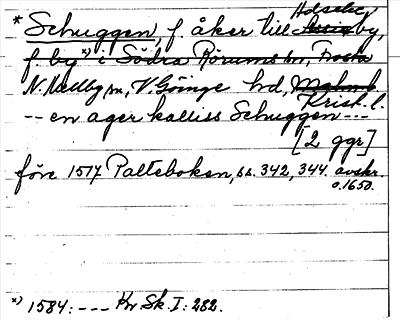 * Schuggen, f. åker till Holseby,
f. by *) i Södra Rörums sn, Frosta
N. Mellby sn, V. Göinge hd, Malmh
Krist. l.
-- en ager kalliss Schuggen ---
[2 ggr]
före 1517 Palteboken, ss. 342, 344. avskr.
o. 1650.
*) 1584: --- Kr Sk. I: 282.